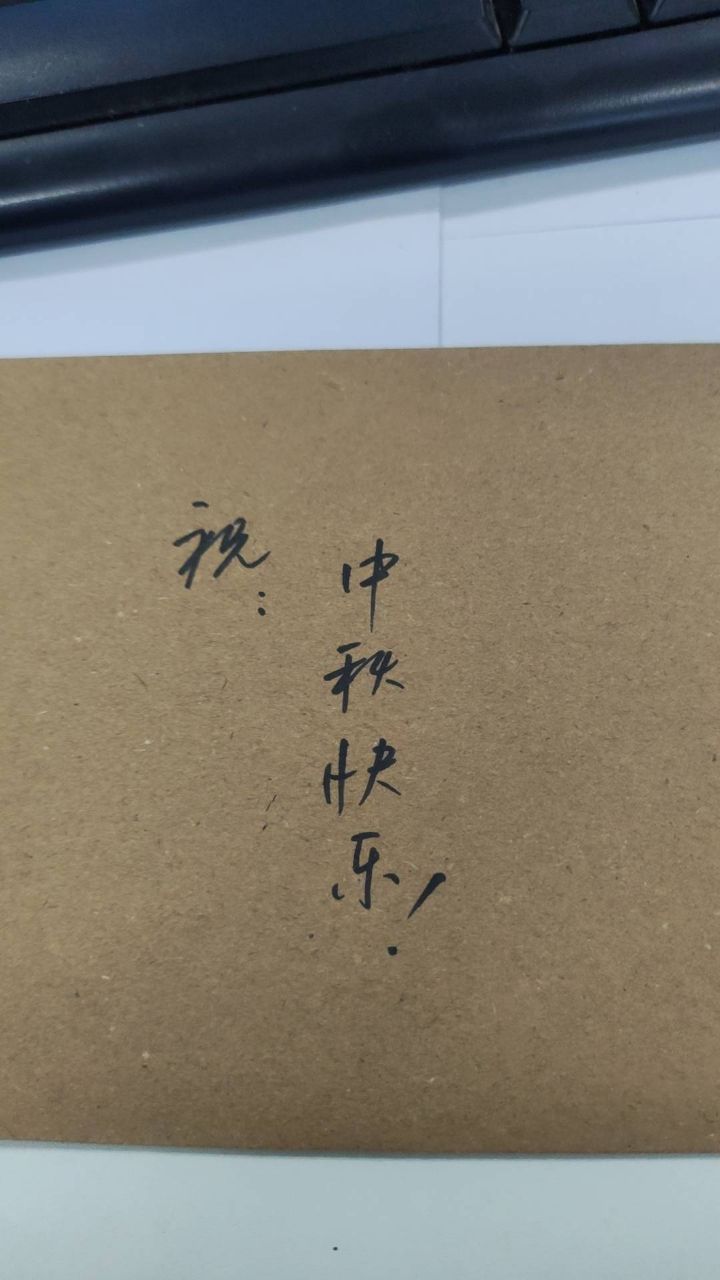 祝：
中秋快乐！